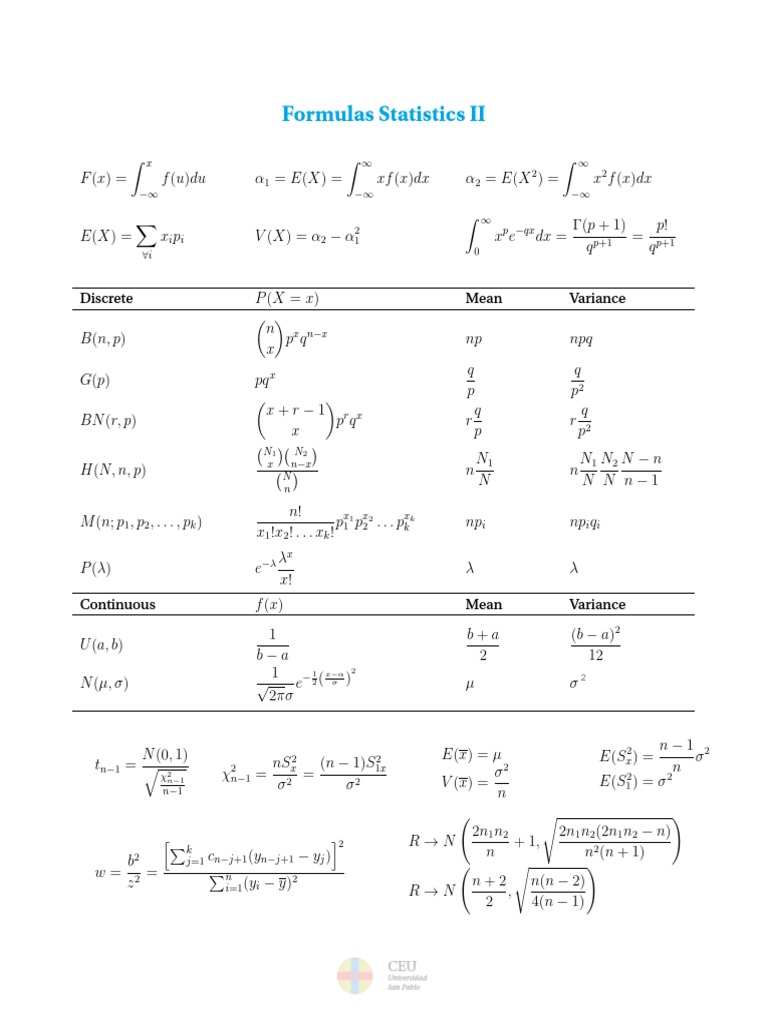 Formulas Statistics II
F(x) = ∫_{−∞}^{x} f(u)du    α₁ = E(X) = ∫_{−∞}^{∞} xf(x)dx    α₂ = E(X²) = ∫_{−∞}^{∞} x²f(x)dx
E(X) = ∑_{∀i} xᵢpᵢ    V(X) = α₂ − α₁²    ∫_{0}^{∞} x^p e^{−qx}dx = Γ(p + 1)/q^{p+1} = p!/q^{p+1}
Discrete    P(X = x)    Mean    Variance
B(n, p)    \binom{n}{x} p^x q^{n−x}    np    npq
G(p)    pq^x    q/p    q/p²
BN(r, p)    \binom{x + r − 1}{x} p^r q^x    r q/p    r q/p²
H(N, n, p)    \binom{N₁}{x}\binom{N₂}{n−x}/\binom{N}{n}    n N₁/N    n N₁/N N₂/N (N − n)/(n − 1)
M(n; p₁, p₂, . . . , p_k)    n!/(x₁!x₂! . . . x_k!) p₁^{x₁} p₂^{x₂} . . . p_k^{x_k}    npᵢ    npᵢqᵢ
P(λ)    e^{−λ} λ^x/x!    λ    λ
Continuous    f(x)    Mean    Variance
U(a, b)    1/(b − a)    (b + a)/2    (b − a)²/12
N(μ, σ)    1/(√(2π)σ) e^{−½((x−α)/σ)²}    μ    σ²
t_{n−1} = N(0, 1)/√(χ²_{n−1}/(n−1))    χ²_{n−1} = nS²_x/σ² = (n − 1)S²_{1x}/σ²    E(x̅) = μ    E(S²_x) = (n − 1)/n σ²
V(x̅) = σ²/n    E(S²₁) = σ²
w = b²/z² = [∑_{j=1}^{k} c_{n−j+1}(y_{n−j+1} − y_j)]²/∑_{i=1}^{n}(yᵢ − y̅)²    R → N(2n₁n₂/n + 1, √(2n₁n₂(2n₁n₂ − n)/(n²(n + 1))))
R → N((n + 2)/2, √(n(n − 2)/(4(n − 1))))
CEU
Universidad
San Pablo